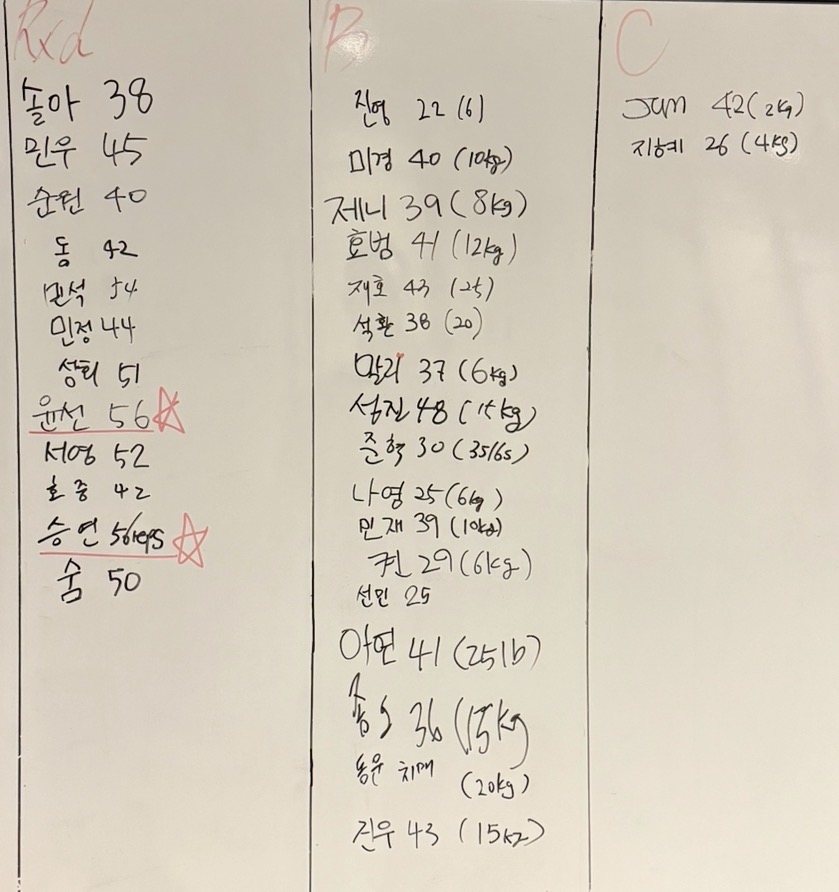 Rxd
솔아 38
민우 45
순원 40
동 42
민석 54
민정 44
성희 51
윤선 56
서영 52
호중 42
승연 56reps
숨 50
B
진영 22 (6)
미경 40 (10kg)
제니 39 (8kg)
효범 41 (12kg)
재호 43 (25)
석환 38 (20)
말리 37 (6kg)
성진 48 (15kg)
준혁 30 (35lbs)
나영 25 (6kg)
민재 39 (10kg)
29 (6kg)
선민 25
41 (25lb)
36 (15kg
(20kg)
진우 43 (15kg)
C
Jun 42 (2kg)
지혜 26 (4kg)